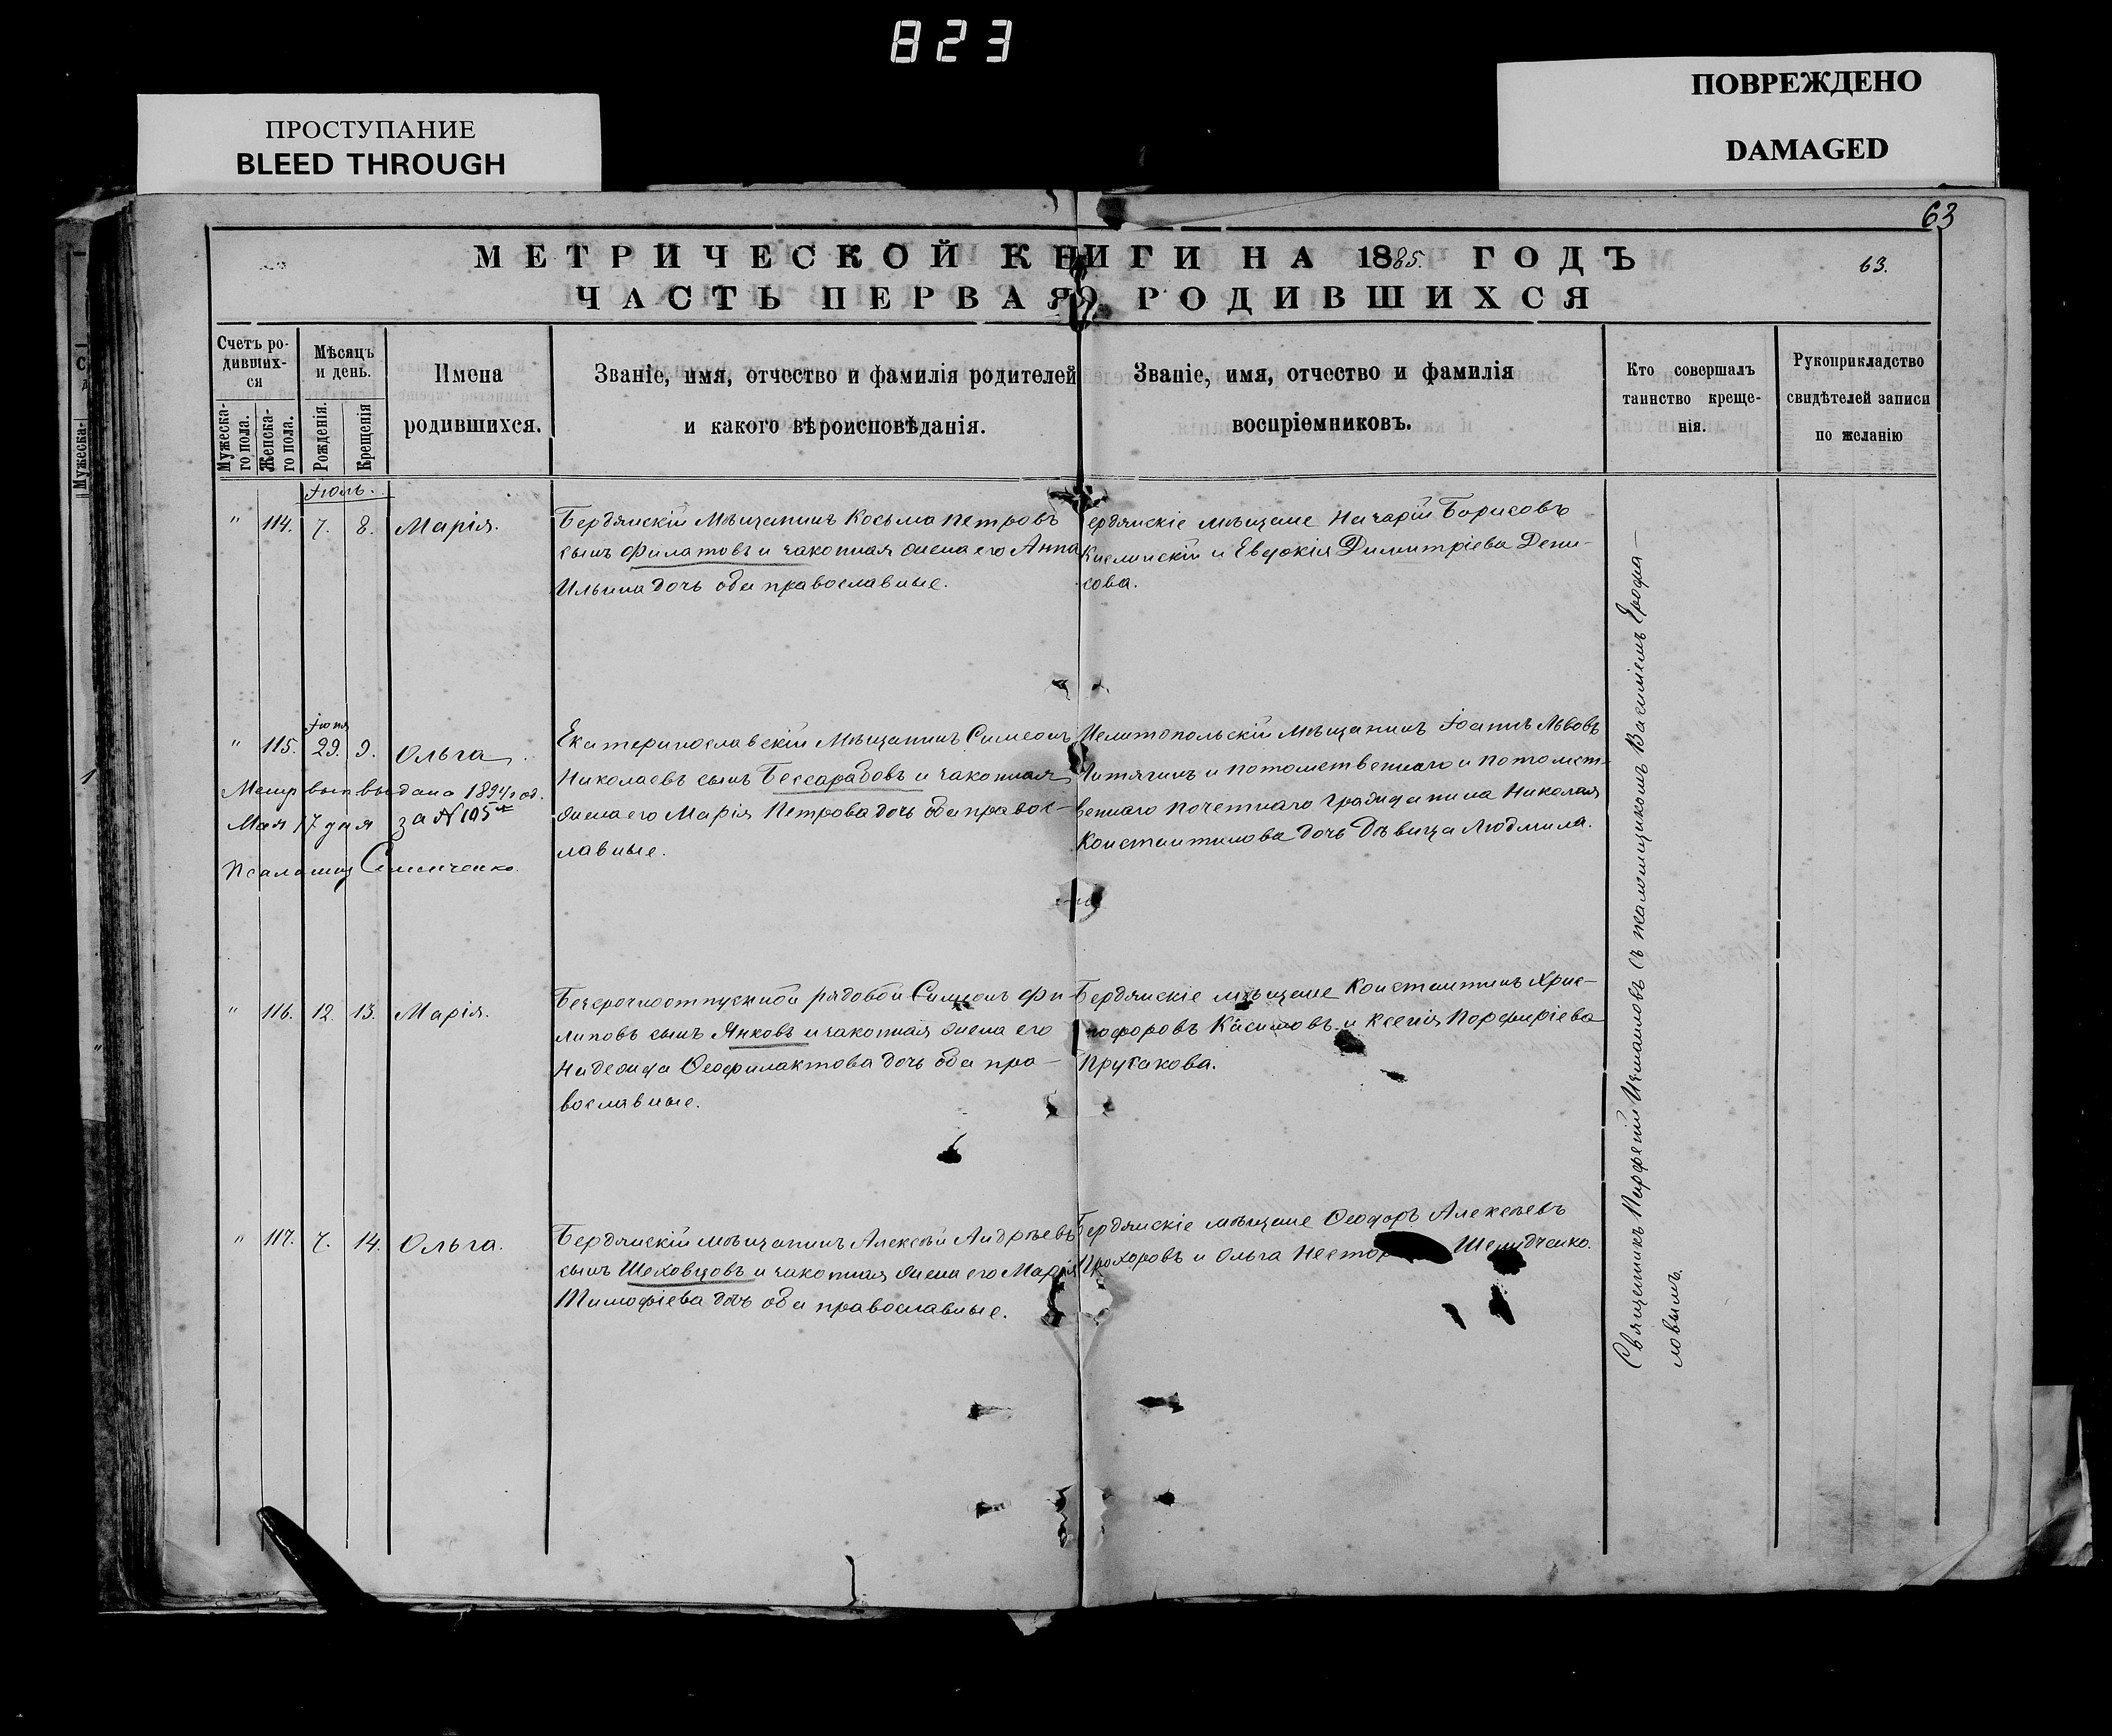 823
ПРОСТУПАНИЕ
BLEED THROUGH
ПОВРЕЖДЕНО
DAMAGED
63
МЕТРИЧЕСКОЙ КНИГИ НА 1885. ГОДЪ
63.
ЧАСТЬ ПЕРВАЯ, РОДИВШИХСЯ
Счетъ ро-
дивших-
ся
Мужеска-
го пола.
Женска-
го пола.
Мѣсяцъ
и день.
Рожденія.
Крещенія
Имена
родившихся.
Званіе, имя, отчество и фамилія родителей
и какого вѣроисповѣданія.
Званіе, имя, отчество и фамилія
воспріемниковъ.
Кто совершалъ
таинство креще-
нія.
Рукоприкладство
свидѣтелей записи
по желанію
Іюль.
" 114. 7. 8. Марія.
Бердянскій Мѣщанинъ Косьма Петровъ
сынъ Филатовъ и законная жена его Анна
Ильина дочь оба православные.
ердянскіе мѣщане Назарій Борисовъ
и Евдокія Димитріева Дени-
сова.
Іюня
" 115. 29. 9. Ольга
Метр вып выдана 1894 год.
Мая 17 дня за № 105
Псаломщ
Екатеринославскій Мѣщанинъ Симеонъ
Николаевъ сынъ Бессарабовъ и законная
жена его Марія Петрова дочь оба правос-
лавные.
Мелитопольскій Мѣщанинъ Іоаннъ Львовъ
и потомственнаго и потомст-
веннаго почетнаго гражданина Николая
Константинова дочь Дѣвица Людмила.
" 116. 12. 13. Марія.
Безсрочноотпускной рядовой Симеонъ Фи-
липовъ сынъ Янковъ и законная жена его
Надежда Ѳеофилактова дочь оба пра-
вославные.
Бердянскіе мѣщане Константинъ Хрис-
тофоровъ Касимовъ и Ксенія Порфиріева
Пругакова.
" 117. 7. 14. Ольга.
Бердянскій мѣщанинъ Алексѣй Андрѣевъ
сынъ Шеховцовъ и законная жена его Марія
Тимофіева дочь оба православные.
Бердянскіе мѣщане Ѳеодоръ Алексѣевъ
Прохоровъ и Ольга
Священникъ Парфеній съ псаломщикомъ Василіемъ Ерофа-
ловымъ.